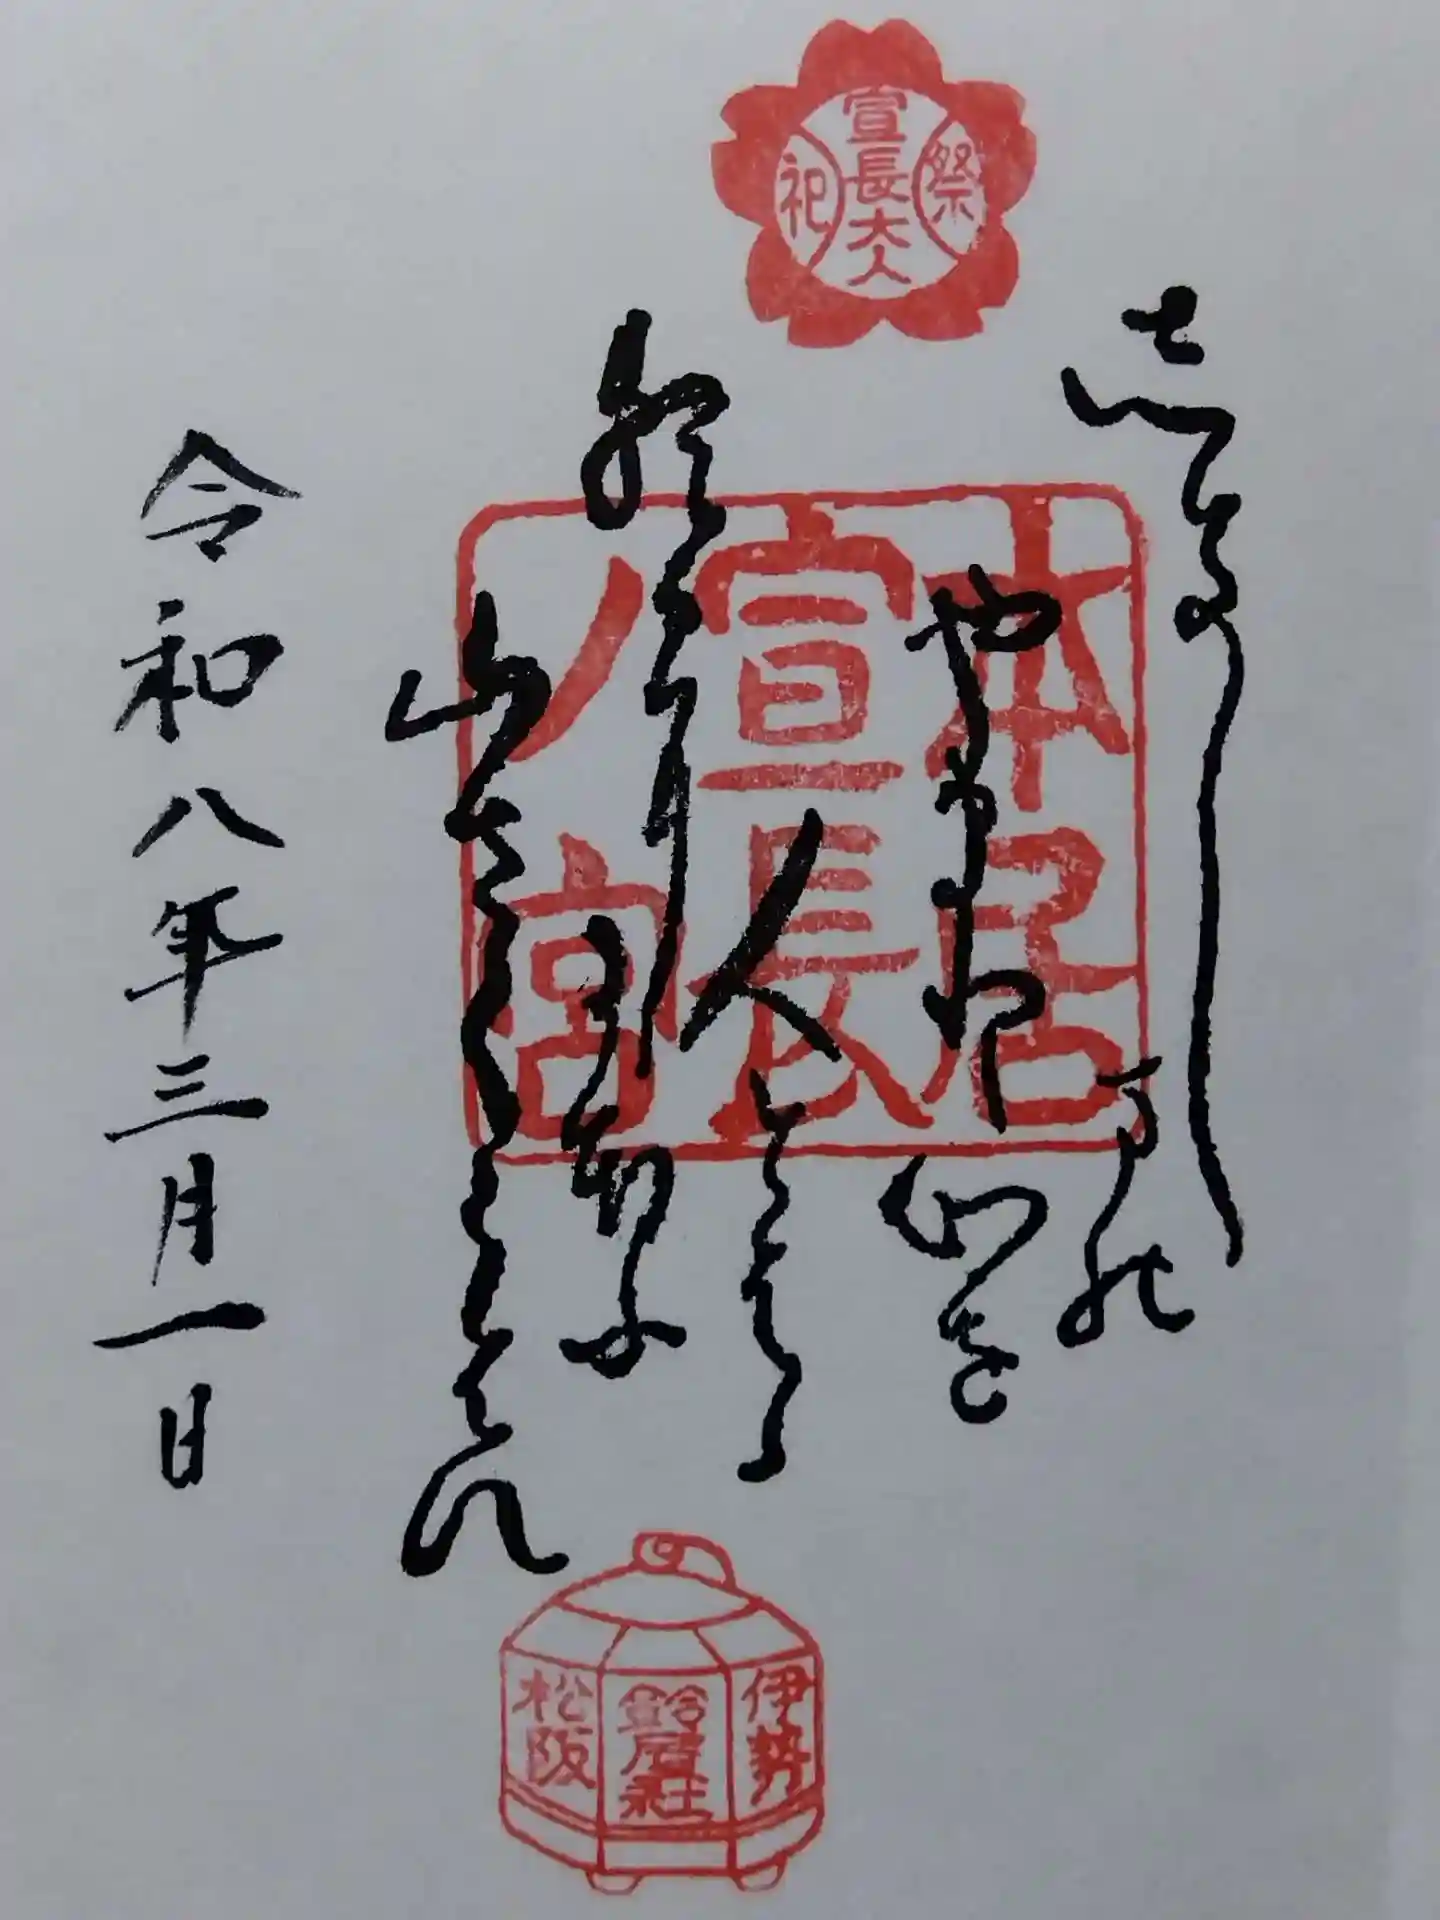 祭
宣長大人
祀
志きしまの
やまと心を
人とはゝ
朝日ににほふ
山さくらはな
本居
宣長
ノ宮
令和八年三月一日
伊勢
鈴屋社
松阪